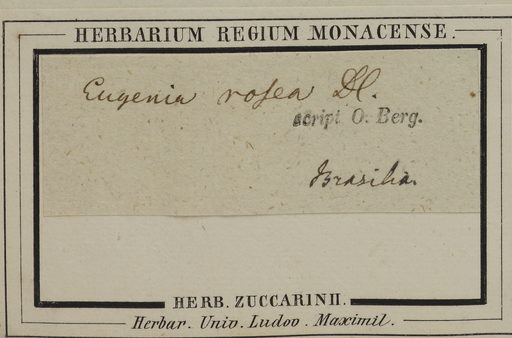 HERBARIUM REGIUM MONACENSE.
Eugenia rosea DC.
script O. Berg.
Brasilia.
HERB. ZUCCARINII.
Herbar. Univ. Ludov. Maximil.